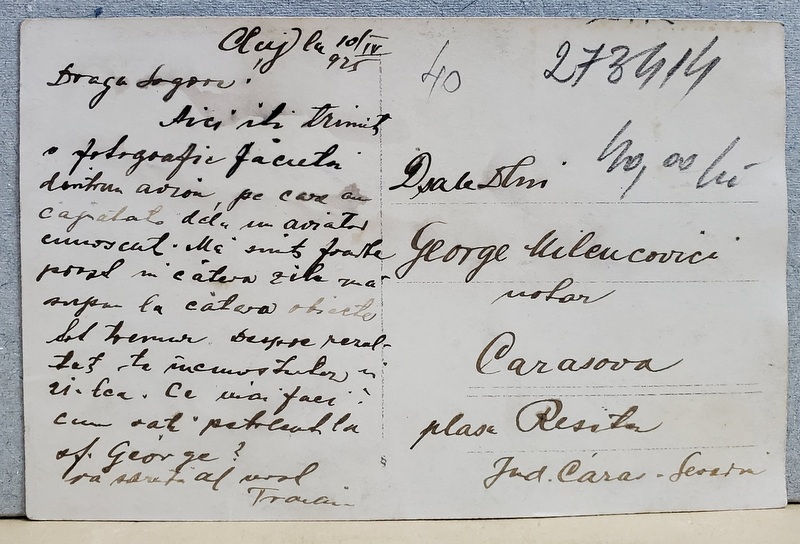 Cluj la 10/IV
925
Draga
Aici iti trimit
o fotografie facuta
dintrun avion, pe care am
capatato dela un aviator
cunoscut. Mă simt foarte
prost in câteva zile mă
supun la câteva obiecte
tot tremur. Despre rezul-
tat te
Ce mai faci?
cum ati petrecut la
sf. George?
va saruta al vost
Traian
40
273414
40,00 lei
Dsale Dlui
George Milencovici
notar
Carasova
plasa Resita
Jud. Caras-Severin